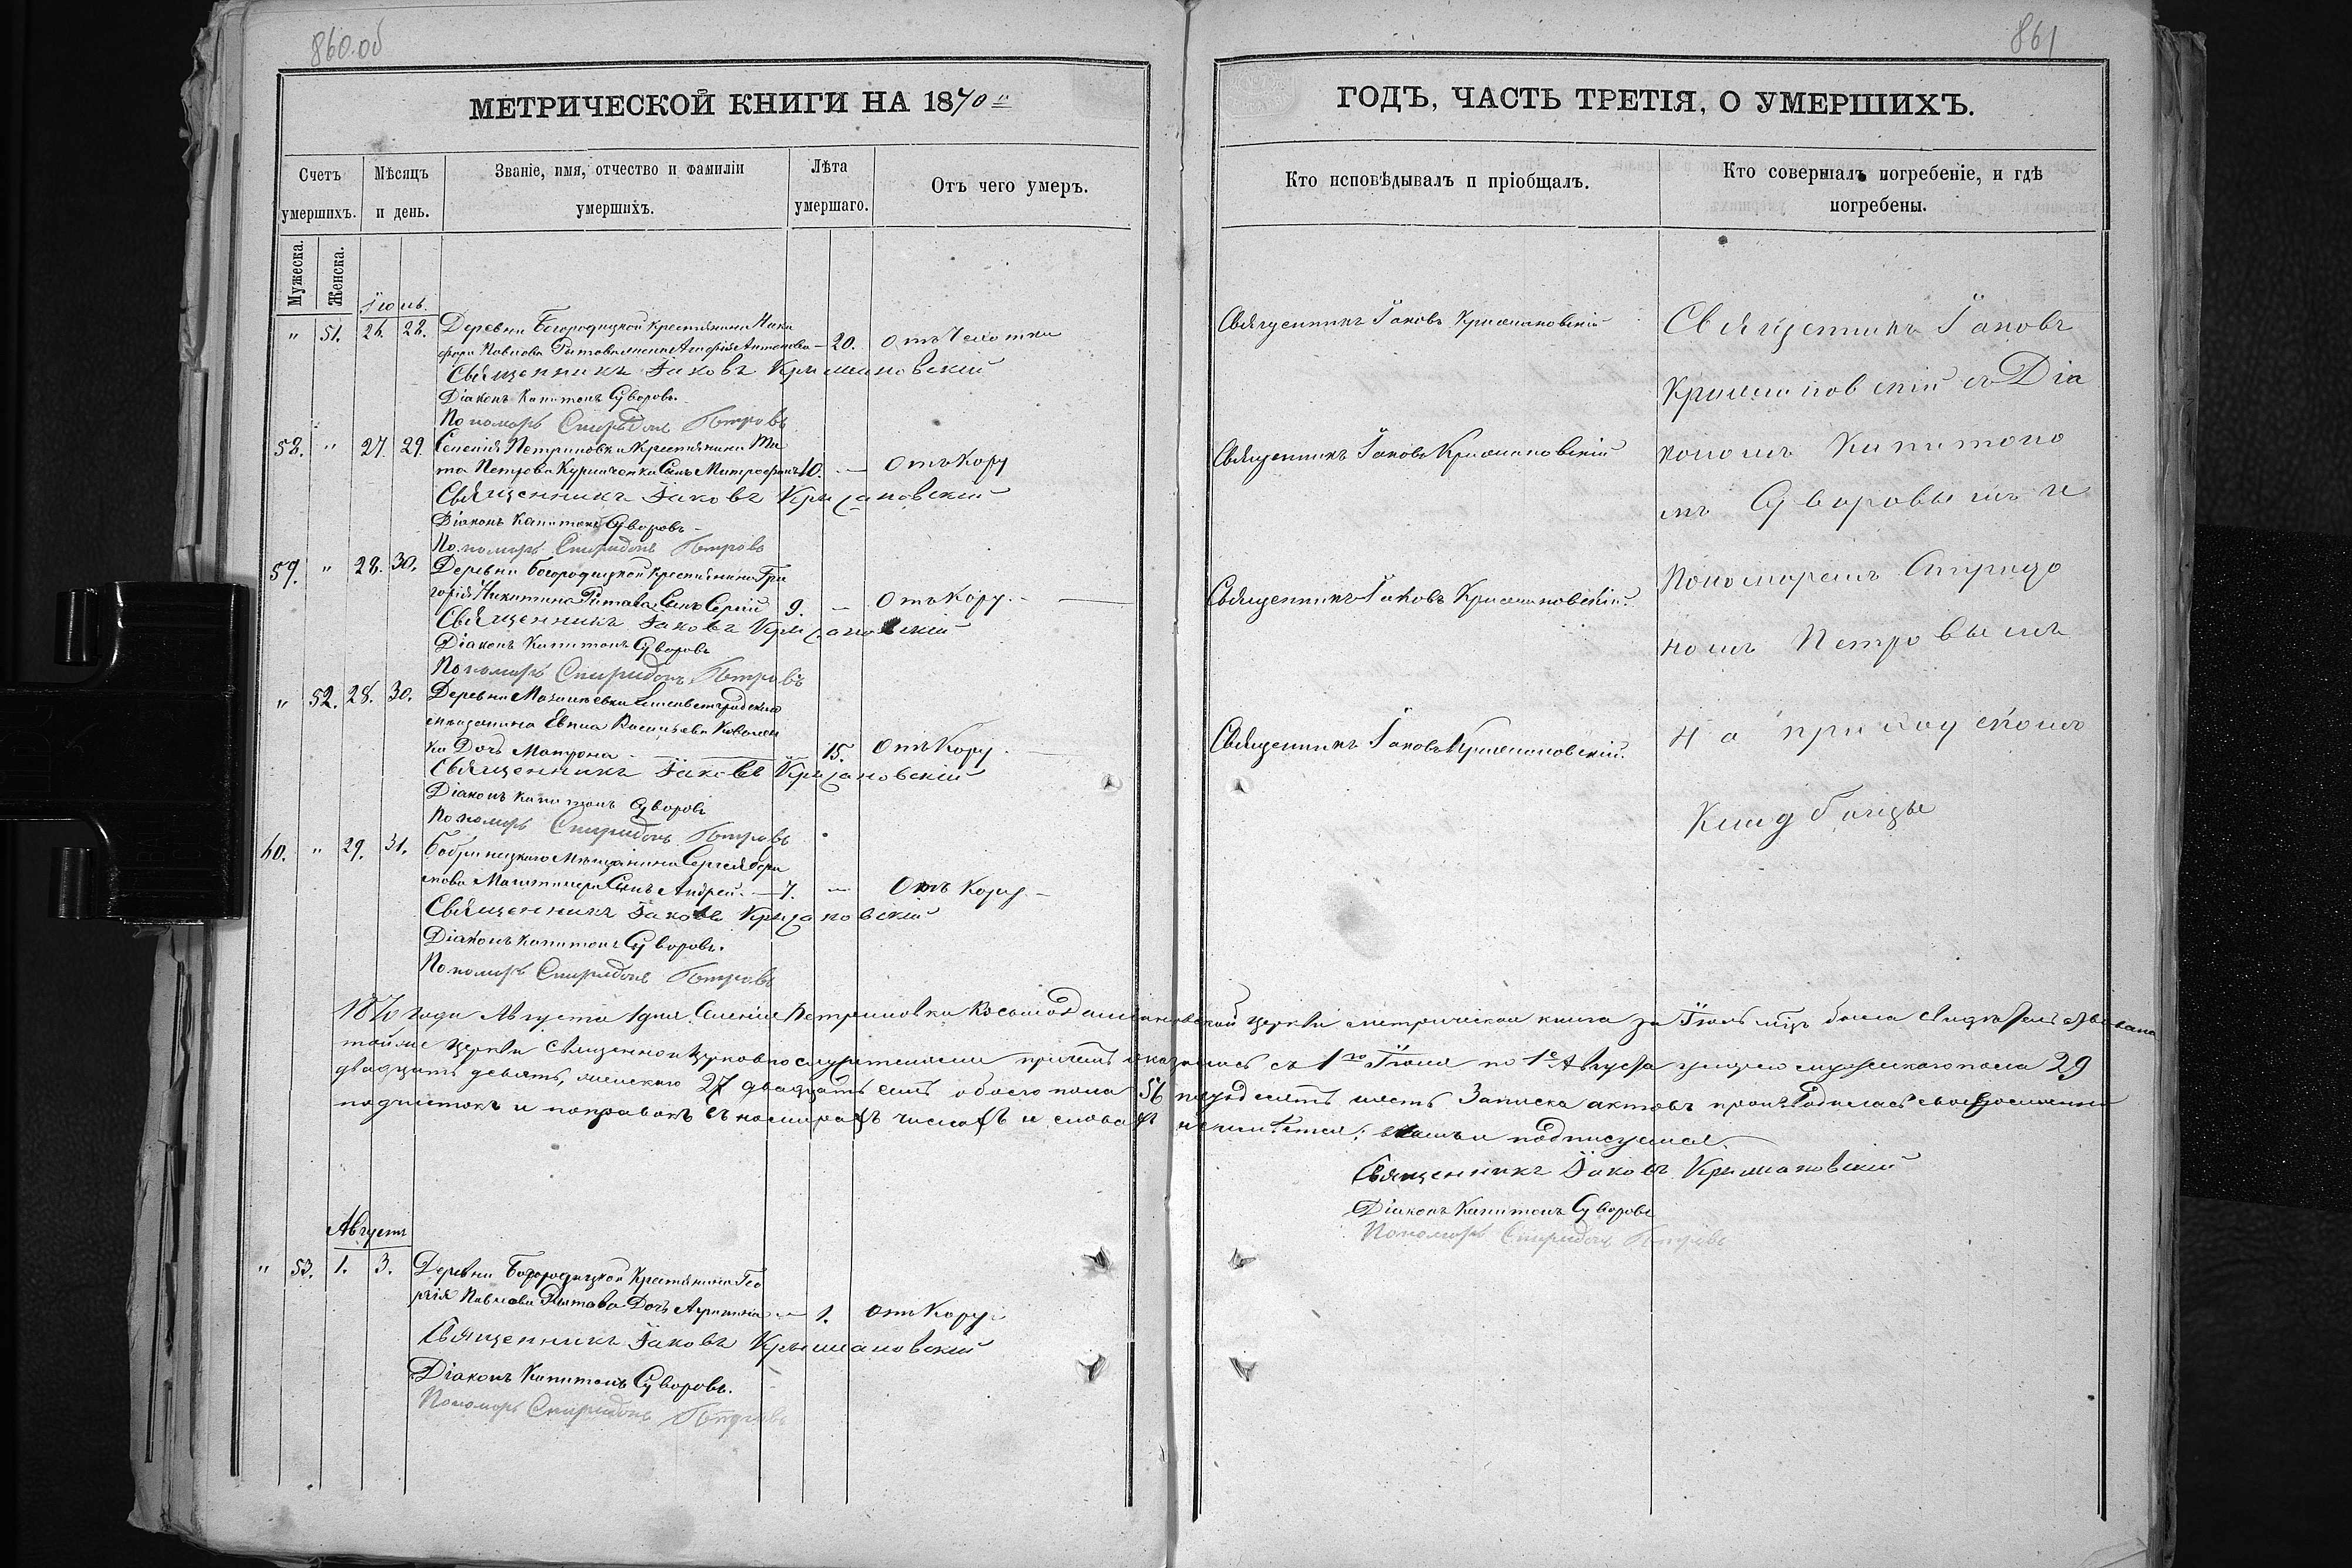 860.об
861
МЕТРИЧЕСКОЙ КНИГИ НА 1870 й
ГОДЪ, ЧАСТЬ ТРЕТІЯ, О УМЕРШИХЪ.
Счетъ умершихъ.
Мѣсяцъ и день.
Званіе, имя, отчество и фамиліи умершихъ.
Лѣта умершаго.
Отъ чего умеръ.
Кто исповѣдывалъ и пріобщалъ.
Кто совершалъ погребеніе, и гдѣ погребены.
Мужеска.
Женска.
Іюль.
" 51. 26. 28. Деревни Богородицкой крестьянина Ники
фора Павлова жена Антонова — 20. отъ Чехотки
Священникъ Іаковъ Крижановскій
Священникъ Іаковъ Крижановскій
Діаконъ Капитонъ Суворовъ.
Пономарь Спиридонъ Петровъ
58. " 27. 29. Селенія Петриновки крестьянина
Петрова Сынъ Митрофанъ 10. — Отъ Кору
Священникъ Іаковъ Крижановскій
Священникъ Іаковъ Крижановскій
Діаконъ Капитонъ Суворовъ
Пономарь Спиридонъ Петровъ
59. " 28. 30. Деревни Богородицкой крестьянина Гри
горія Никитина Сынъ Сергій 9. — Отъ Кору.
Священникъ Іаковъ Крижановскій.
Священникъ Іаковъ Крижановскій
Діаконъ Капитонъ Суворовъ
Пономарь Спиридонъ Петровъ
" 52. 28. 30. Деревни
Васильева
Дочь Матрона — 15. Отъ Кору
Священникъ Іаковъ Крижановскій.
Священникъ Іаковъ Крижановскій
Діаконъ Капитонъ Суворовъ
Пономарь Спиридонъ Петровъ
60. " 29. 31. Бобринецкаго Мѣщанина Сергея
Сынъ Андрей. — 7. — Отъ Кору —
Священникъ Іаковъ Крижановскій
Діаконъ Капитонъ Суворовъ.
Пономарь Спиридонъ Петровъ
Священникъ Іаковъ
Крижановскій съ Діа
кономъ Капитоно
мъ Суворовымъ и
Пономаремъ Спиридо
номъ Петровымъ
на приходскомъ
Кладбищѣ
1870 года Августа 1 дня Селенія Петриновки церкви метрическая книга за Іюль мцъ была свидѣтельствована
той же церкви священноцерковнослужителями причемъ оказалось съ 1го Іюля по 1е Августа умерло мужескаго пола 29
двадцать девять, женскаго 27 двадцать семь обоего пола 56 пятьдесятъ шесть Записка актовъ производилась своевременно
подчистокъ и поправокъ въ числахъ и словахъ неимѣется; въ чемъ и подписуемся.
Священникъ Іаковъ Крижановскій
Діаконъ Капитонъ Суворовъ
Пономарь Спиридонъ Петровъ
Августъ
" 53. 1. 3. Деревни Богородицкой Крестьянина Гео
ргія Павлова Дочь — 1. отъ Кору
Священникъ Іаковъ Крижановскій
Діаконъ Капитонъ Суворовъ.
Пономарь Спиридонъ Петровъ